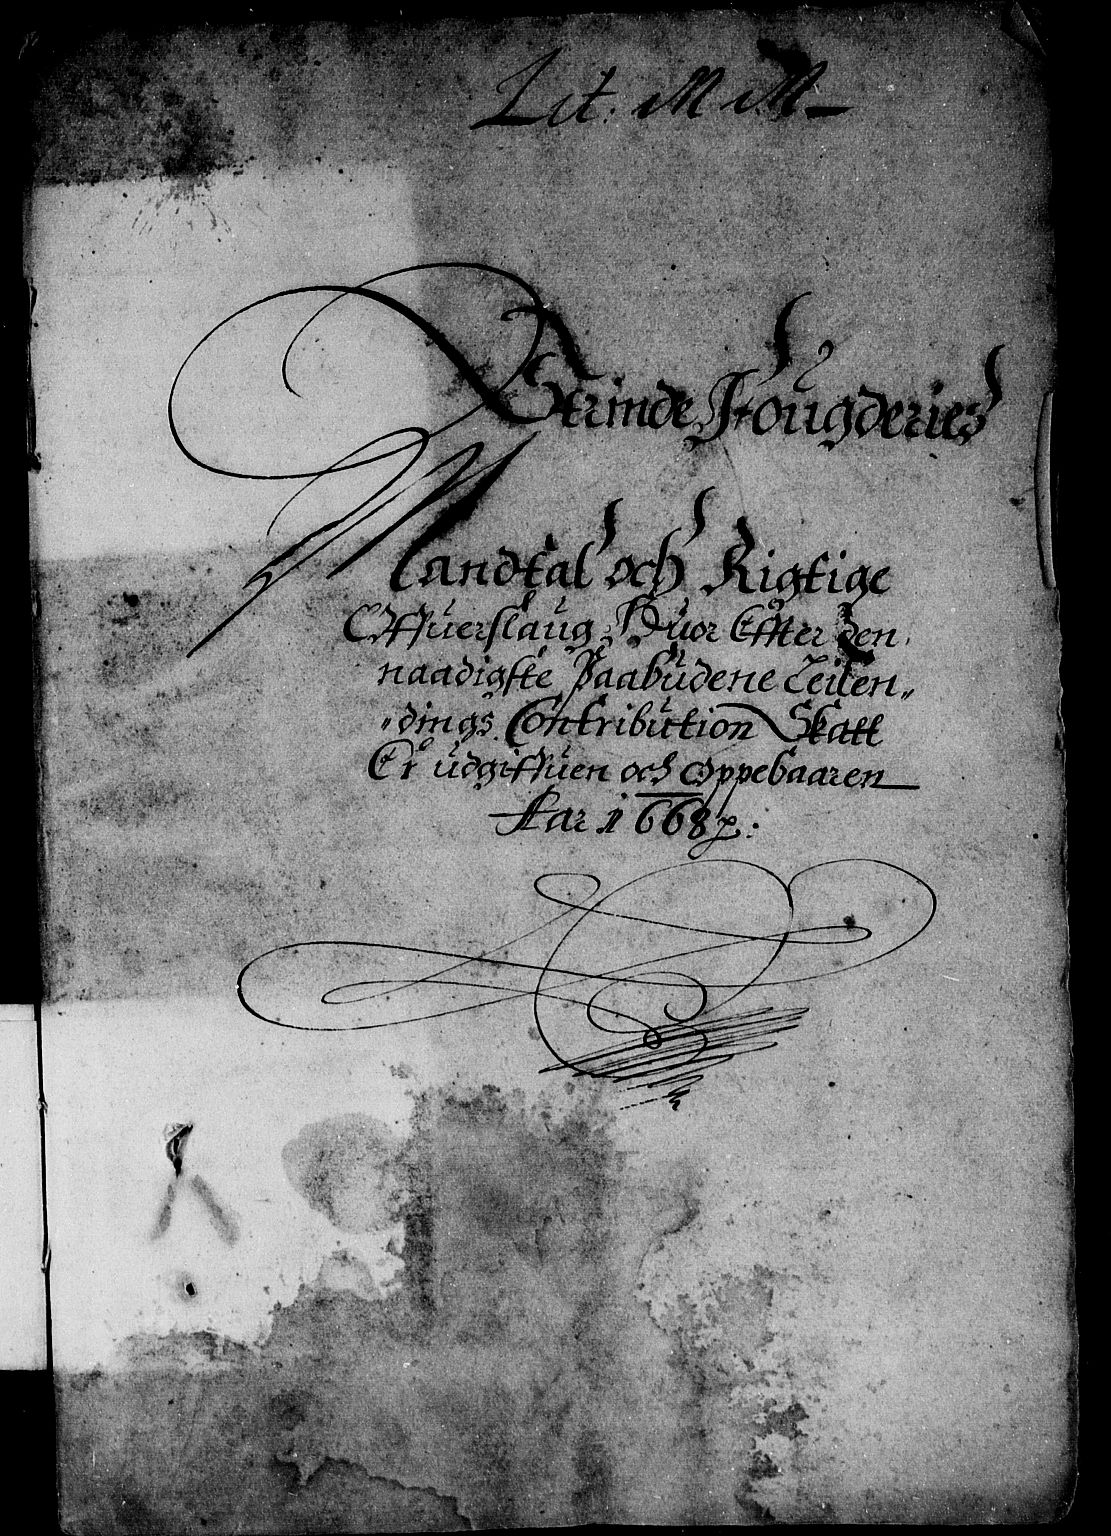 Lit: M M
Strinde Fougderies
Mandtal och Rigtige
Offuerslaug, Huor Effter den
naadigste Paabudene Leilen„
„dings Contribution Skatt
Er udgiffuen och Oppebaaren
Aar 1668